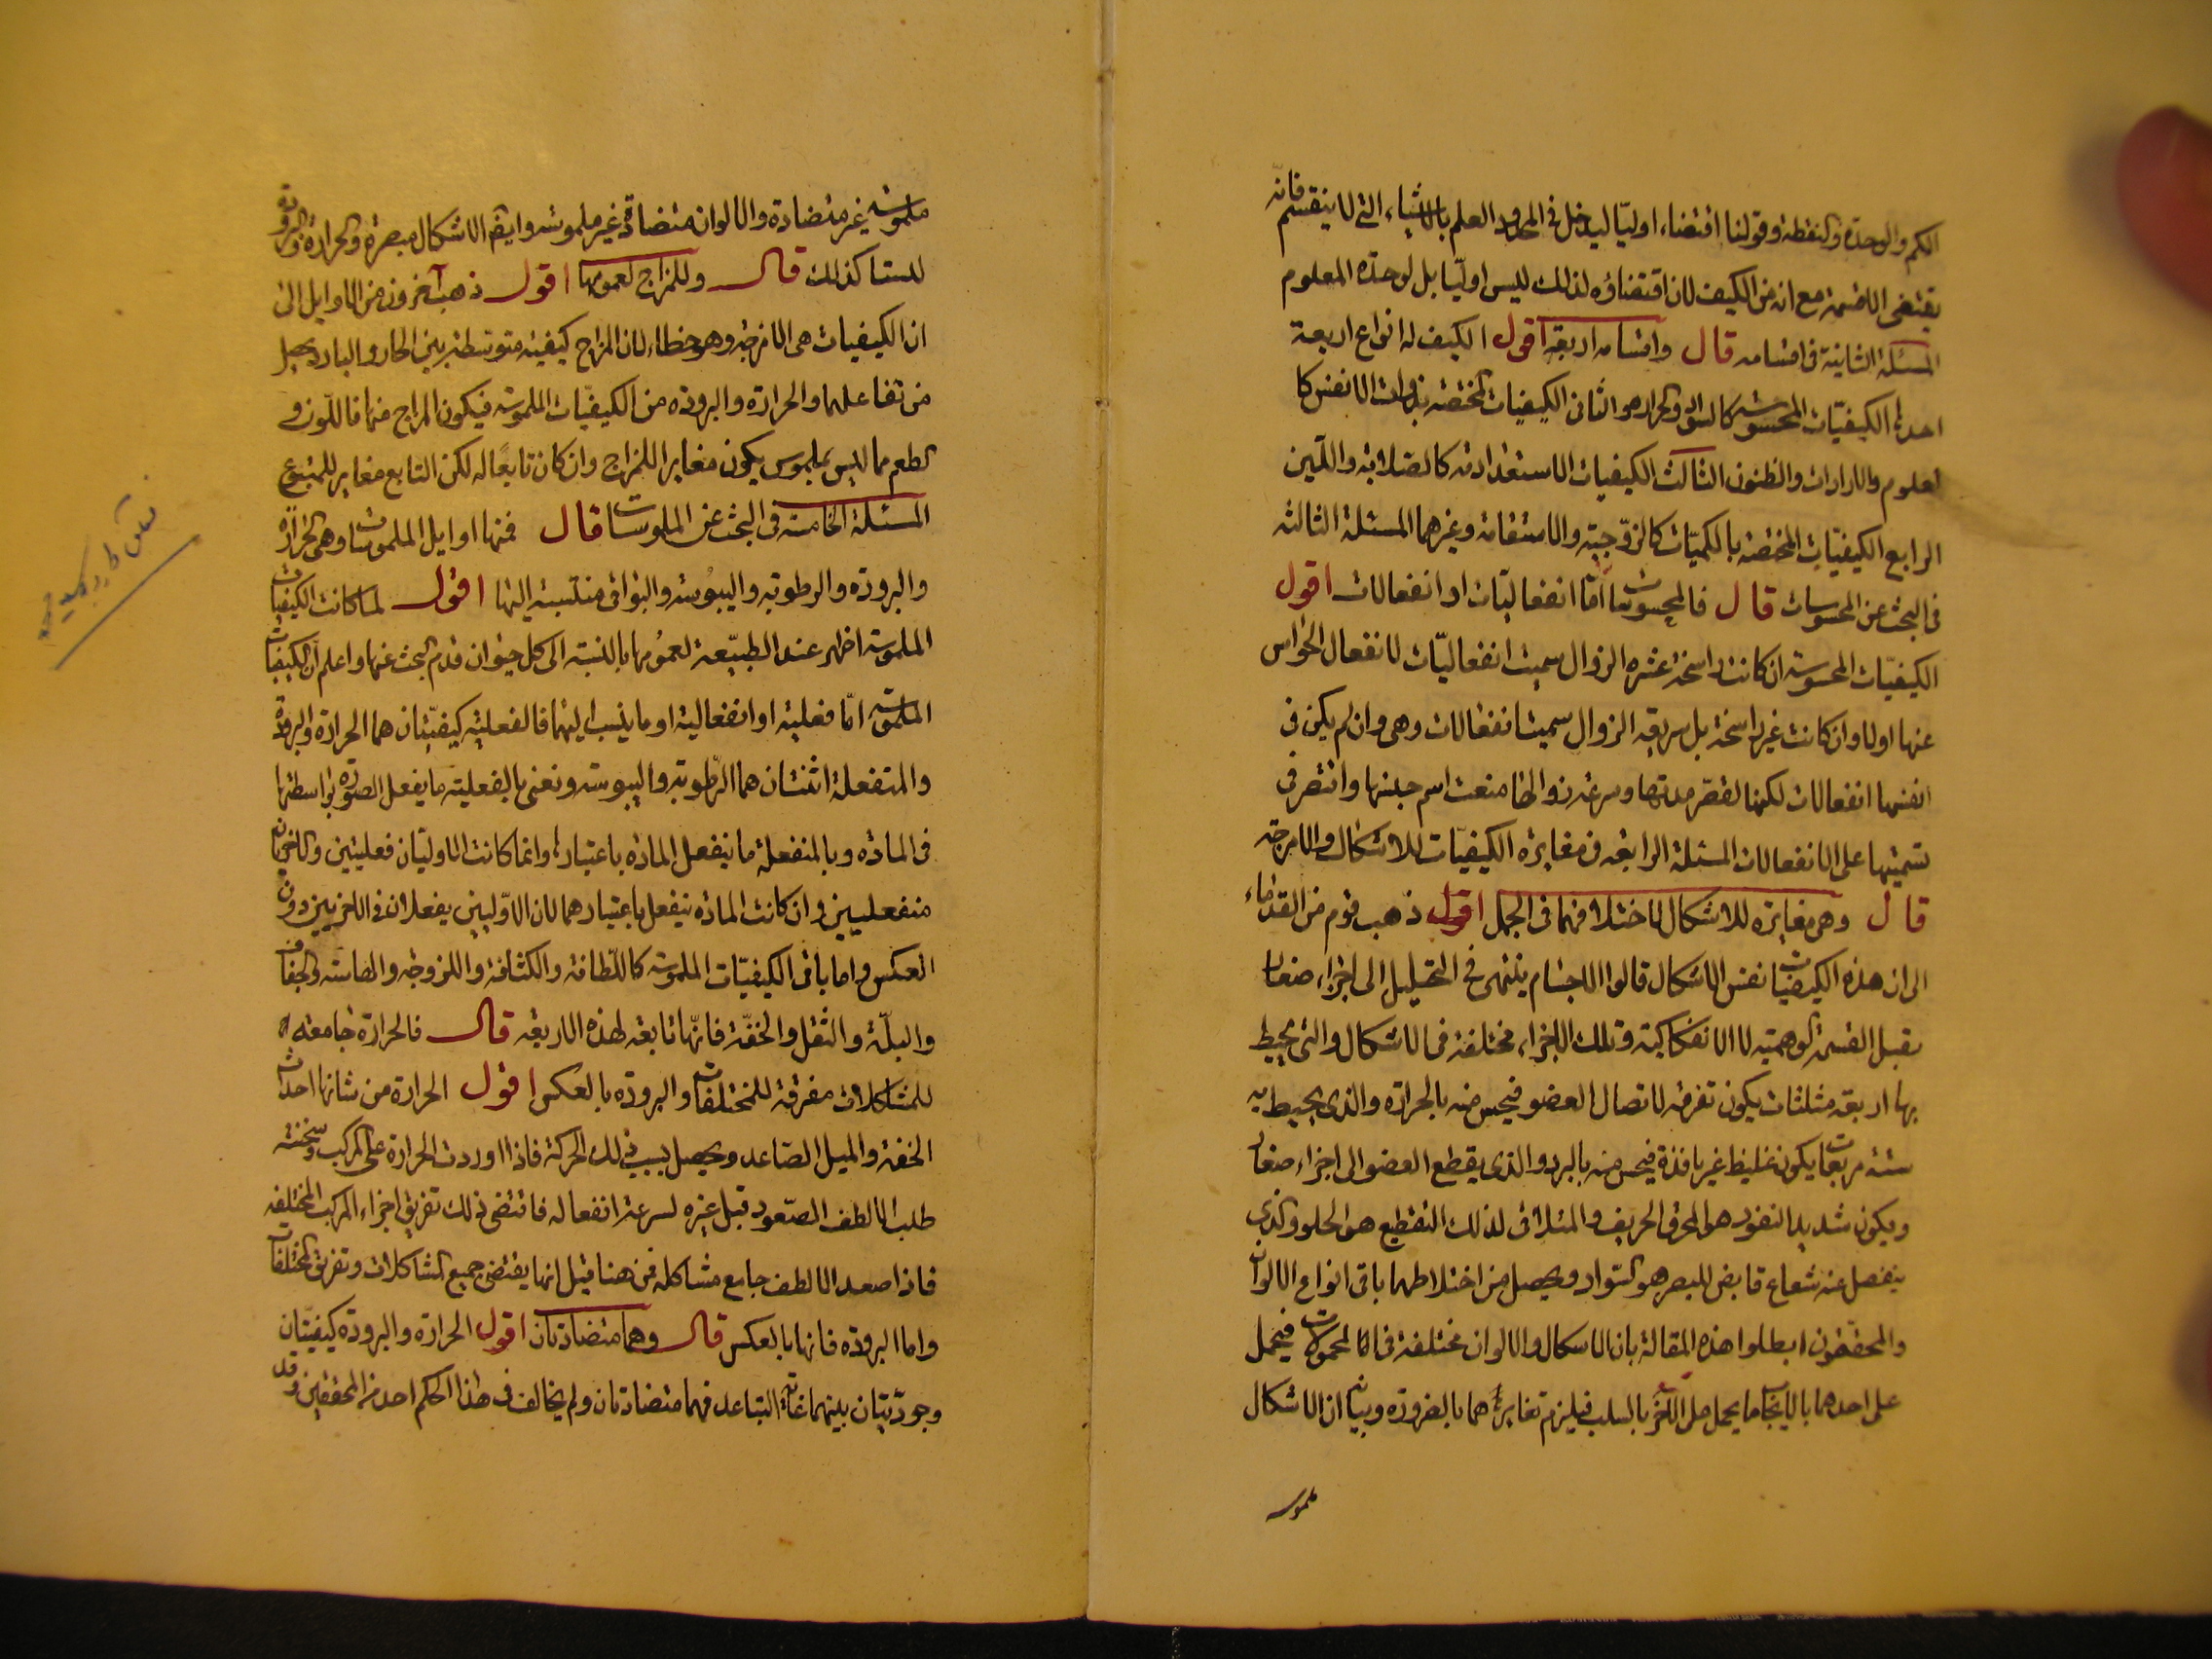 الكم والوحدة والنقطة وقولنا اقتضاء اوليا ليدخل في الحدود العلم بالاشياء التي لا ينقسم فانه
يقتضي اللاقسمة مع انه من الكيف لان اقتضاؤه لذلك ليس اوليا بل لوحدة المعلوم
المسئلة الثانية في اقسامه قال واقسامه اربعة اقول الكيف له انواع اربعة
احدها الكيفيات المحسوسة كالسواد والحرارة والثاني الكيفيات المختصة بذوات الانفس كا
لعلوم والارادات والظنون الثالث الكيفيات الاستعدادية كالصلابة واللين
الرابع الكيفيات المختصة بالكميات كالزوجية والاستقامة وغيرهما المسئلة الثالثة
في البحث عن المحسوسات قال فالمحسوسات اما انفعاليات او انفعالات اقول
الكيفيات المحسوسة ان كانت راسخة عسرة الزوال سميت انفعاليات لانفعال الحواس
عنها اولا وان كانت غير راسخة بل سريعة الزوال سميت انفعالات وهي وان لم يكن في
انفسها انفعالات لكنها لقصر مدتها وسرعة زوالها منعت اسم جنسها واقتصر في
تسميتها على الانفعالات المسئلة الرابعة في مغايرة الكيفيات للاشكال والامزجة
قال وهي مغايرة للاشكال لاختلافهما في الحمل اقول ذهب قوم من القدماء
الى ان هذه الكيفيات نفس الاشكال قالوا الاجسام ينتهي في التحليل الى اجزاء صغار
يقبل القسمة الوهمية لا الانفكاكية وتلك الاجزاء مختلفة في الاشكال والتي يحيط
بها اربعة مثلثات يكون تفرقة لاتصال العضو فيحس منه بالحرارة والذي يحيط به
ستة مربعات يكون غليظ غير نافذة فيحس منه بالبرد والذي يقطع العضو الى اجزاء صغار
ويكون شديد النفوذ هو المحرق الحريف والمتلاقي لذلك التقطيع هو الحلو والذي
ينفصل عنه شعاع قابض للبصر هو السواد ويحصل من اختلاطهما باقي انواع الالوان
والمحققون ابطلوا هذه المقالة بان الاشكال والالوان مختلفة في المحمولات فيحمل
على احدهما بالايجاب ما يحمل على الاخر بالسلب فيلزم تغايرهما بالضرورة وبيانه ان الاشكال
ملموسه
ملموسة غير متضادة والالوان متضادة غير ملموسة وايضا الاشكال مبصرة والحرارة والبرودة
ليستا كذلك قال وللمزاج لعمومها اقول ذهب آخرون من الاوايل الى
ان الكيفيات هي الامزجة وهو خطاء لان المزاج كيفية متوسطة بين الحار والبارد يحصل
من تفاعلهما والحرارة والبرودة من الكيفيات الملموسة فيكون المزاج منها فاللون و
الطعم مما ليس بملموس يكون مغايرا للمزاج وان كان تابعا له لكن التابع مغاير للمتبوع
المسئلة الخامسة في البحث عن الملموسات قال فمنها اوايل الملموسات وهي الحرارة
والبرودة والرطوبة واليبوسة والبواقي منتسبة اليها اقول لما كانت الكيفيات
الملموسة اظهر عند الطبيعة لعمومها بالنسبة الى كل حيوان قدم البحث عنها واعلم ان الكيفيات
الملموسة اما فعلية او انفعالية او ما ينسب اليهما فالفعلية كيفيتان هما الحرارة والبرودة
والمنفعلة اثنتان هما الرطوبة واليبوسة ونعني بالفعلية ما يفعل الصورة بواسطتها
في المادة وبالمنفعلة ما ينفعل المادة باعتبارها وانما كانت الاوليان فعليتين والاخريان
منفعليين وان كانت المادة ينفعل باعتبارهما لان الاوليين يفعلان في الاخريين دون
العكس واما باقي الكيفيات الملموسة كاللطافة والكثافة واللزوجة والهشاشة والجفاف
والبلة والثقل والخفة فانها تابعة لهذه الاربعة قال فالحرارة جامعة
للمتشاكلات مفرقة للمختلفات والبرودة بالعكس اقول الحرارة من شانها احداث
الخفة والميل الصاعد ويحصل بسبب ذلك الحركة فاذا اوردت الحرارة على المركب وسخنته
طلب الالطف الصعود قبل غيره لسرعة انفعاله فاقتضى ذلك تفريق اجزاء المركب المختلفة
فاذا صعد الالطف جامع مشاكله فمن هنا قيل انها يقتضي جمع المتشاكلات وتفريق المختلفات
واما البرودة فانها بالعكس قال وهما متضادتان اقول الحرارة والبرودة كيفيتان
وجوديتان بينهما غاية التباعد فهما متضادتان ولم يخالف في هذا الحكم احد من المحققين وقد